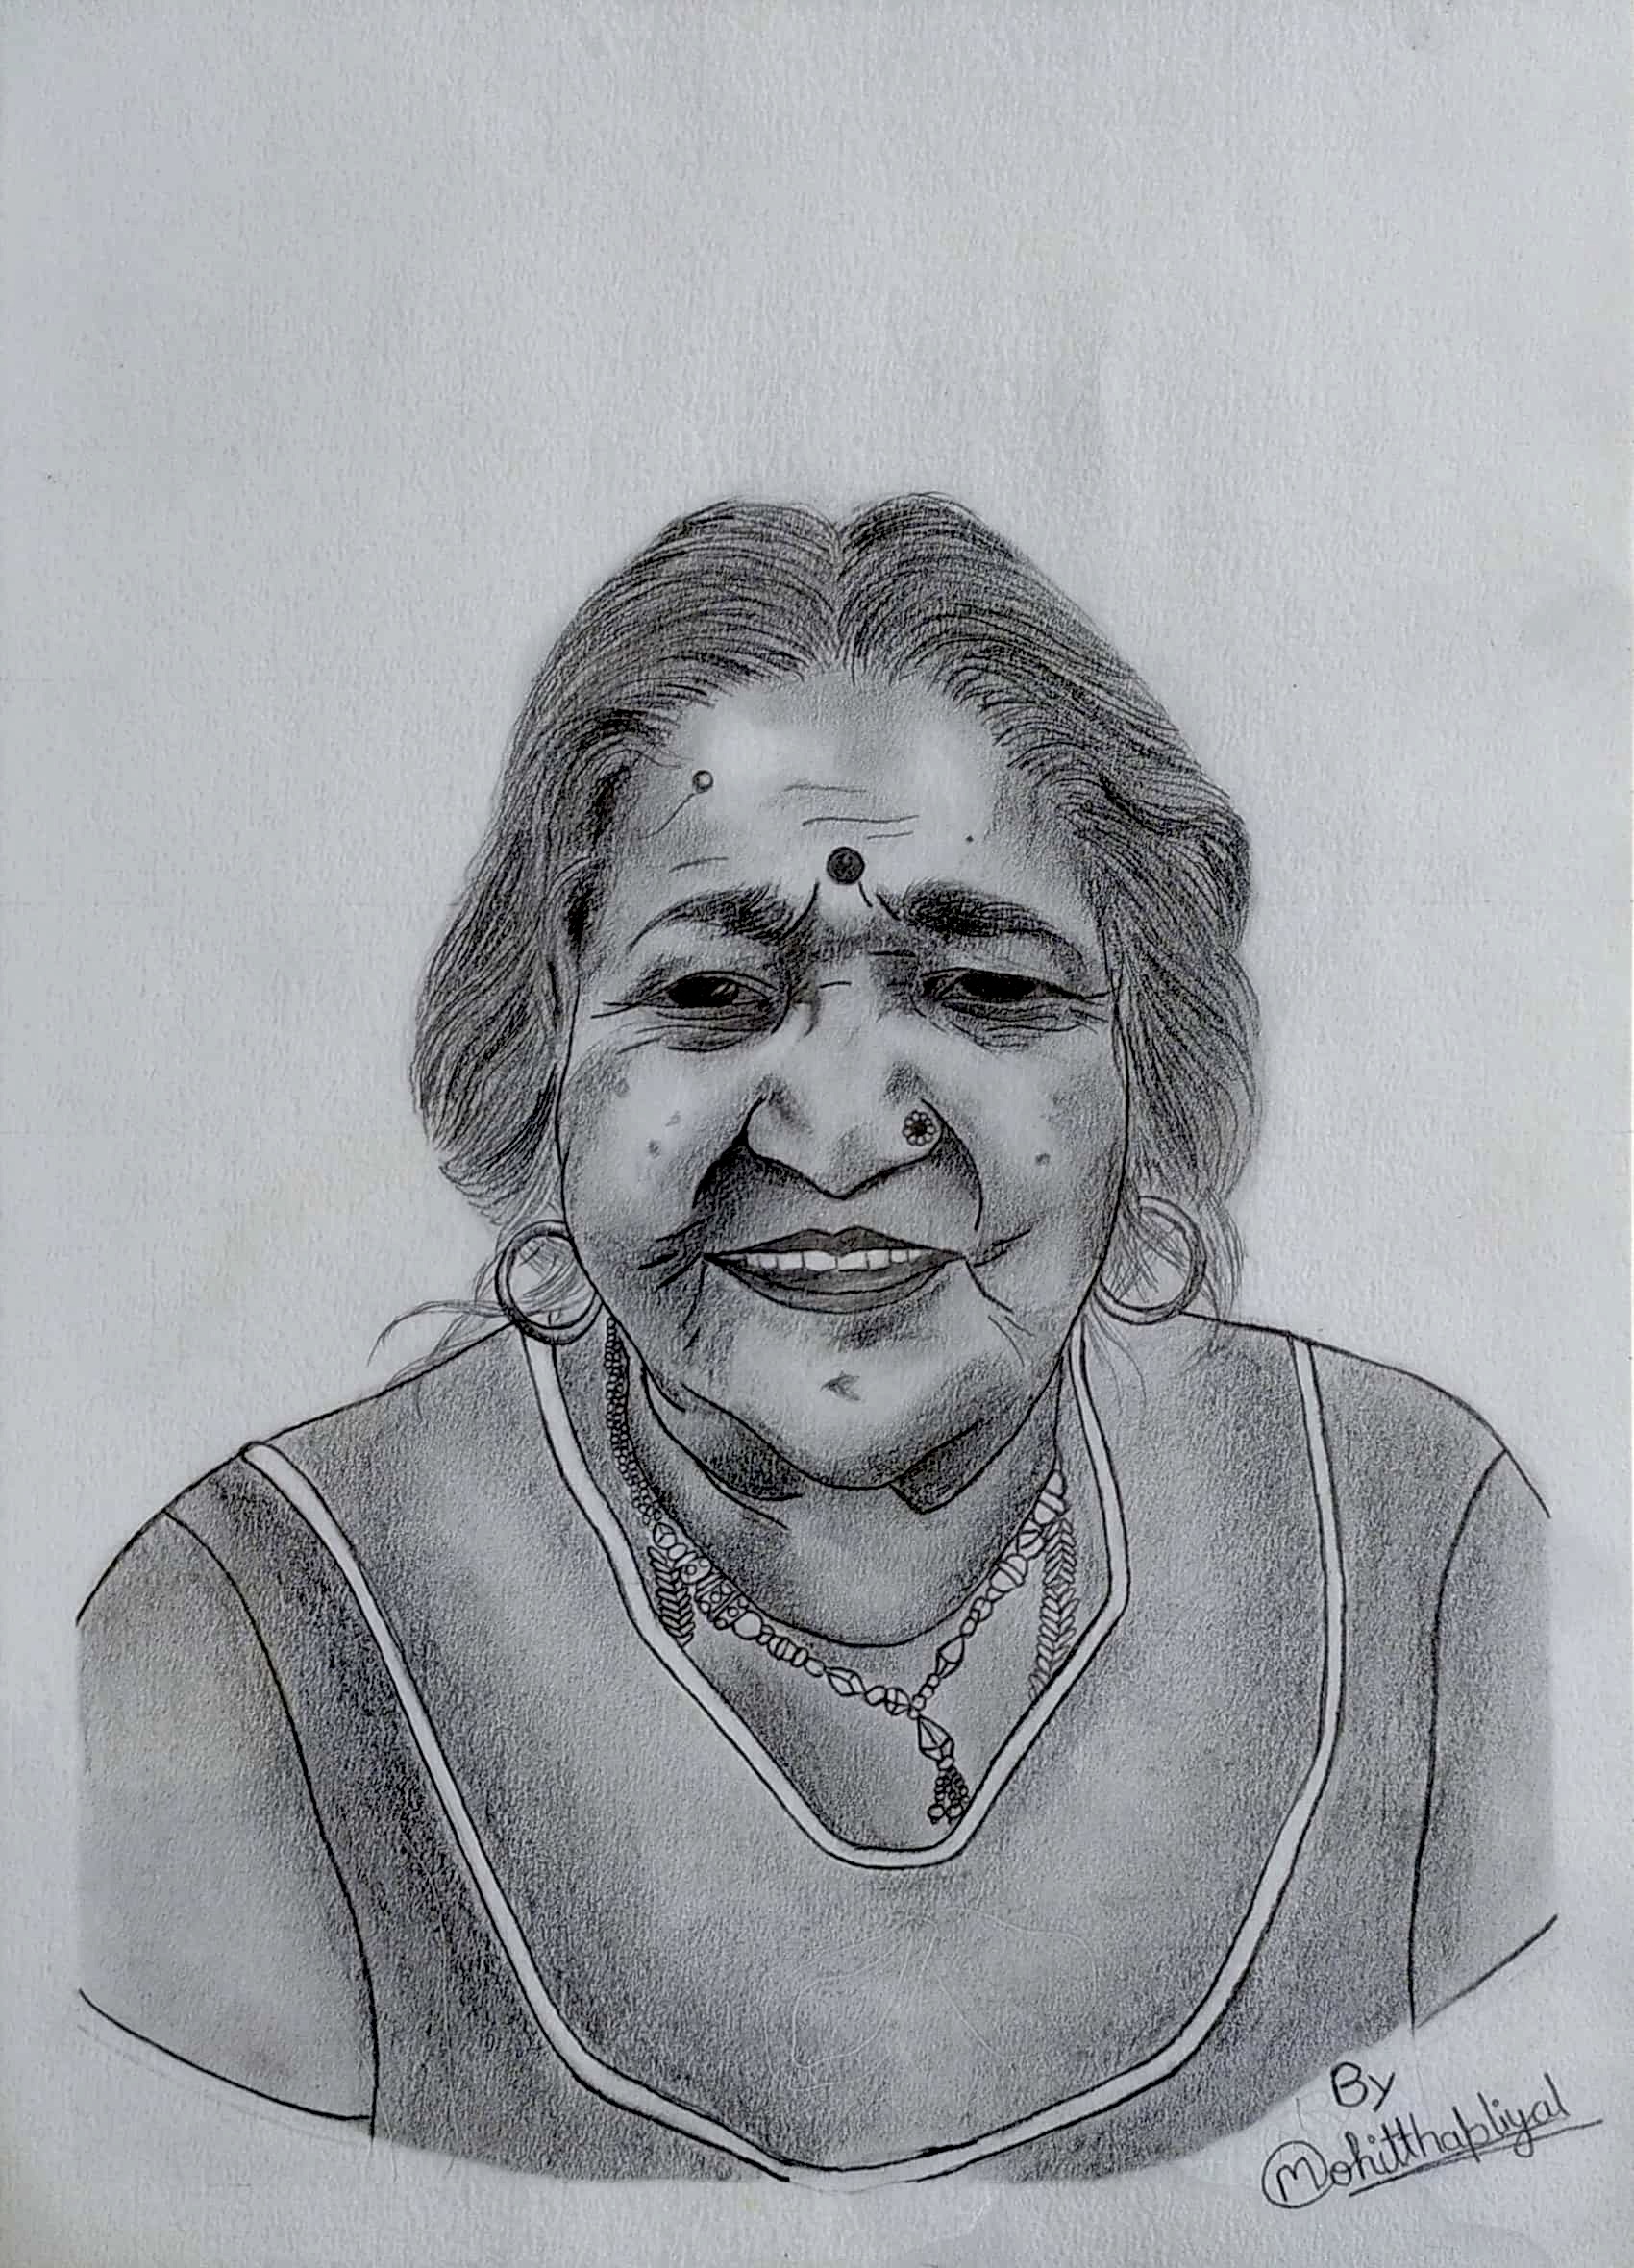 By
Mohitthapliyal